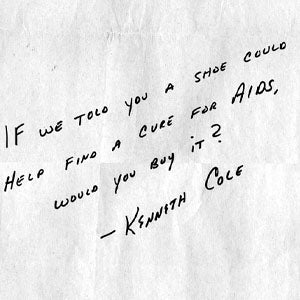 IF WE TOLD YOU A SHOE COULD
HELP FIND A CURE FOR AIDS,
WOULD YOU BUY IT?
- KENNETH COLE